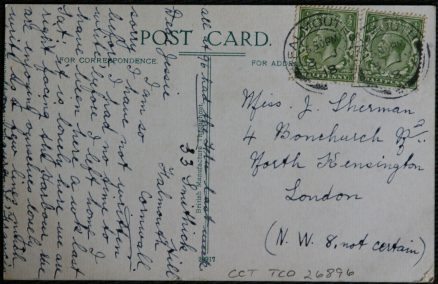 POST CARD.
FOR CORRESPONDENCE
FOR ADDRESS
all
had the
last week
33 Smithick Hill
Falmouth
Cornwall.
Dear Jessie
I am so
sorry I have not written
before I had no time to
write before I left home I
have been here a week last
Sat, it is lovely here we are
right facing the Harbour
we are enjoying ourselves
FALMOUTH
Miss J. Sherman
4 Bonchurch Rd
North Kensington
London
(N. W. 8, not certain)
CCT TCO 26896